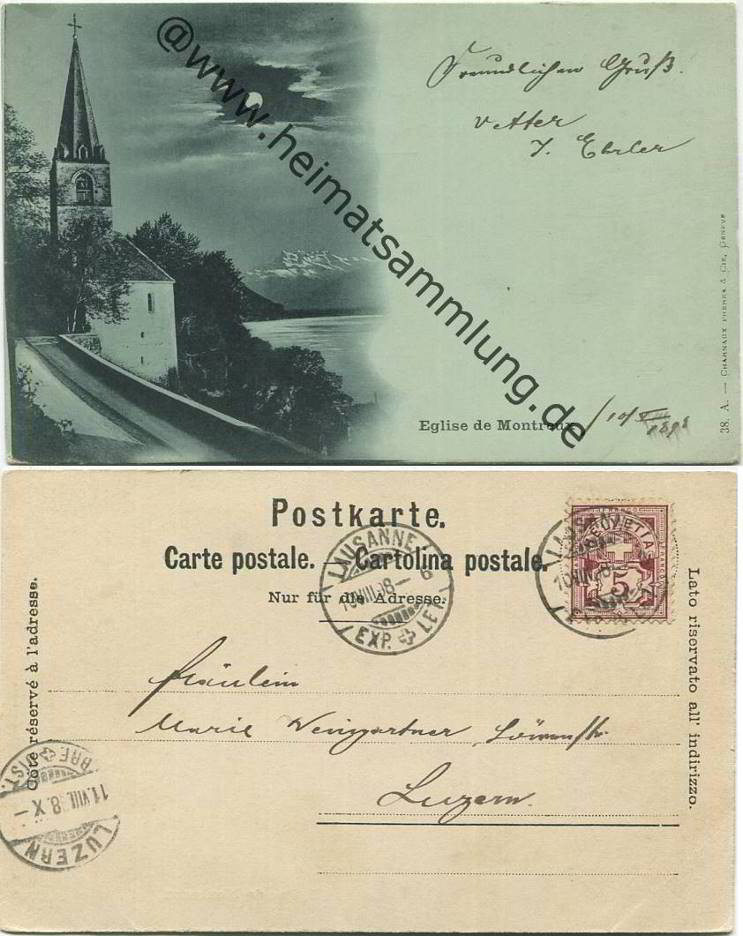 Freundlichen Gruß.
Vetter
J. Ehrler
@www.heimatsammlung.de
Eglise de Montreux
10/VIII 1898
38. A. — CHARNAUX FRÈRES & CIE, GENÈVE
Postkarte.
Carte postale. — Cartolina postale.
Nur für die Adresse.
Côté réservé à l'adresse.
Lato riservato all' indirizzo.
LAUSANNE
10.VIII.98–6
EXP. LET.
HELVETIA
FRANCO
5
LAUSANNE
10.VIII.98
Fräulein
Marie Weingartner, Löwenstr.
Luzern.
BRF. DIST.
11.VIII.98.X–
LUZERN